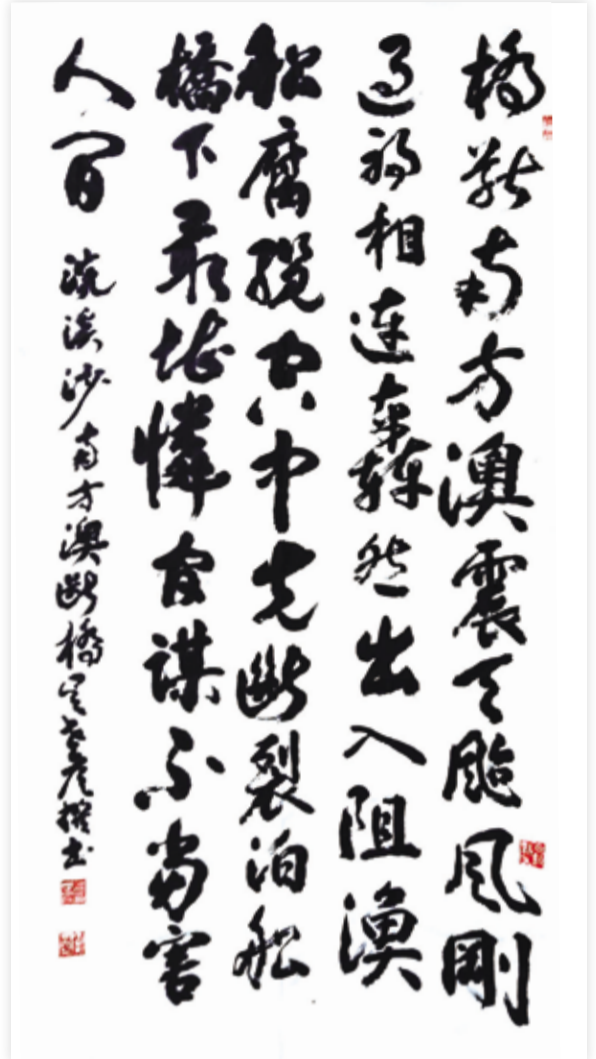 橋斷南方澳震天颱風剛
過禍相連轟然出入阻漁
船腐纜空中先斷裂泊船
橋下最堪憐官謀不當害
人間 浣溪沙 南方澳斷橋 書